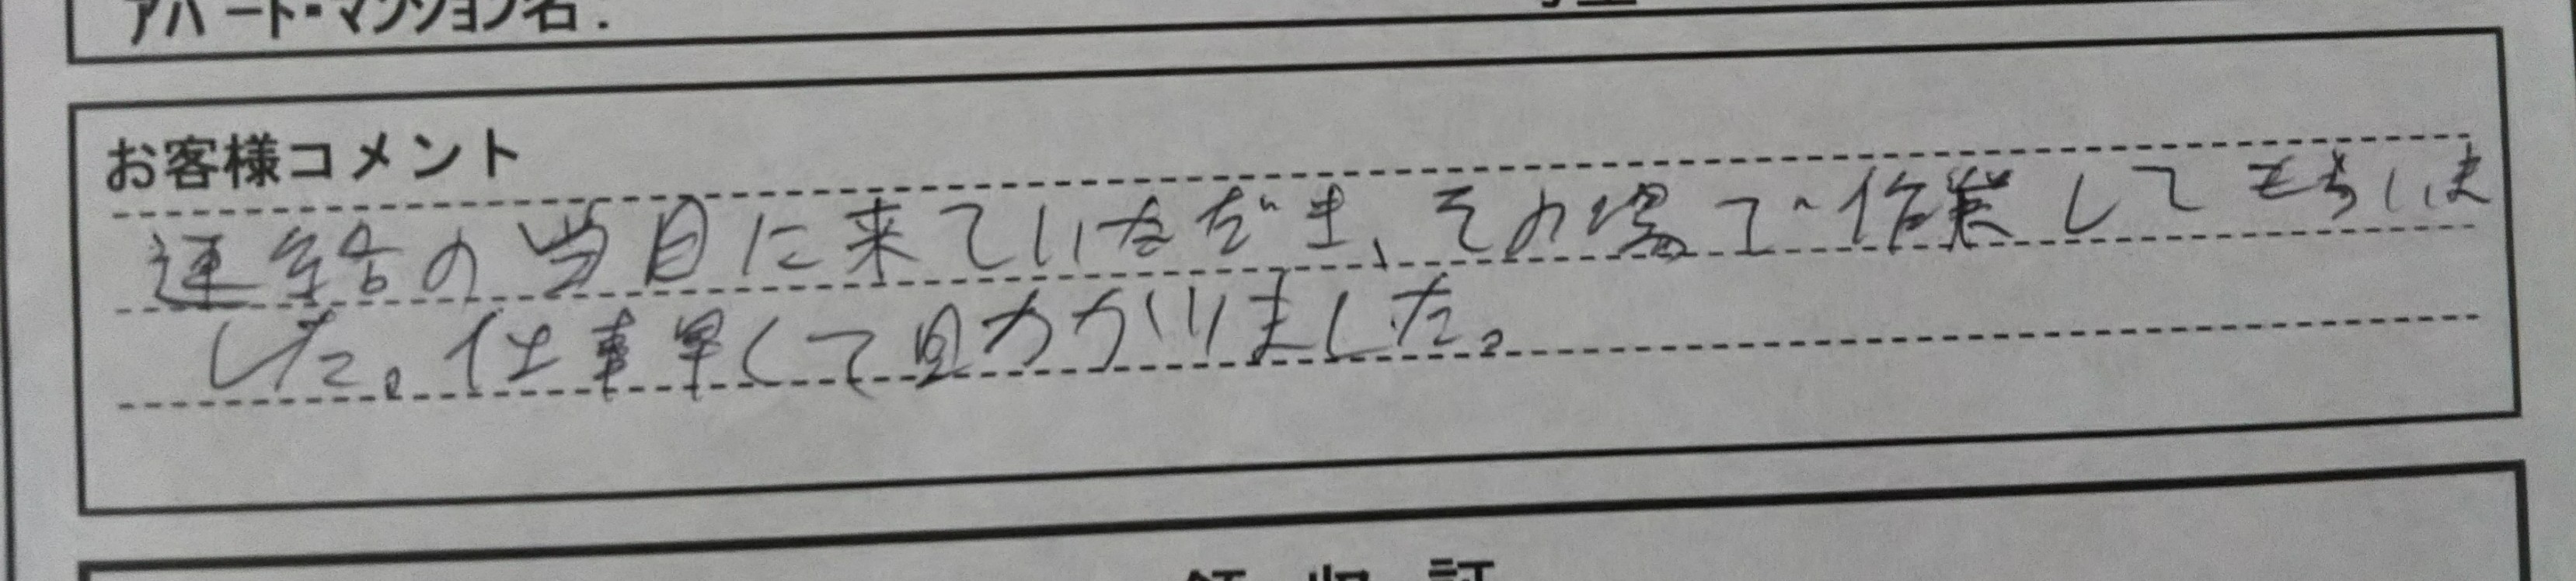 アパート・マンション名:
お客様コメント
連絡の当日に来ていただき、その場で作業してもらいま
した。仕事早くて助かりました。
領収証